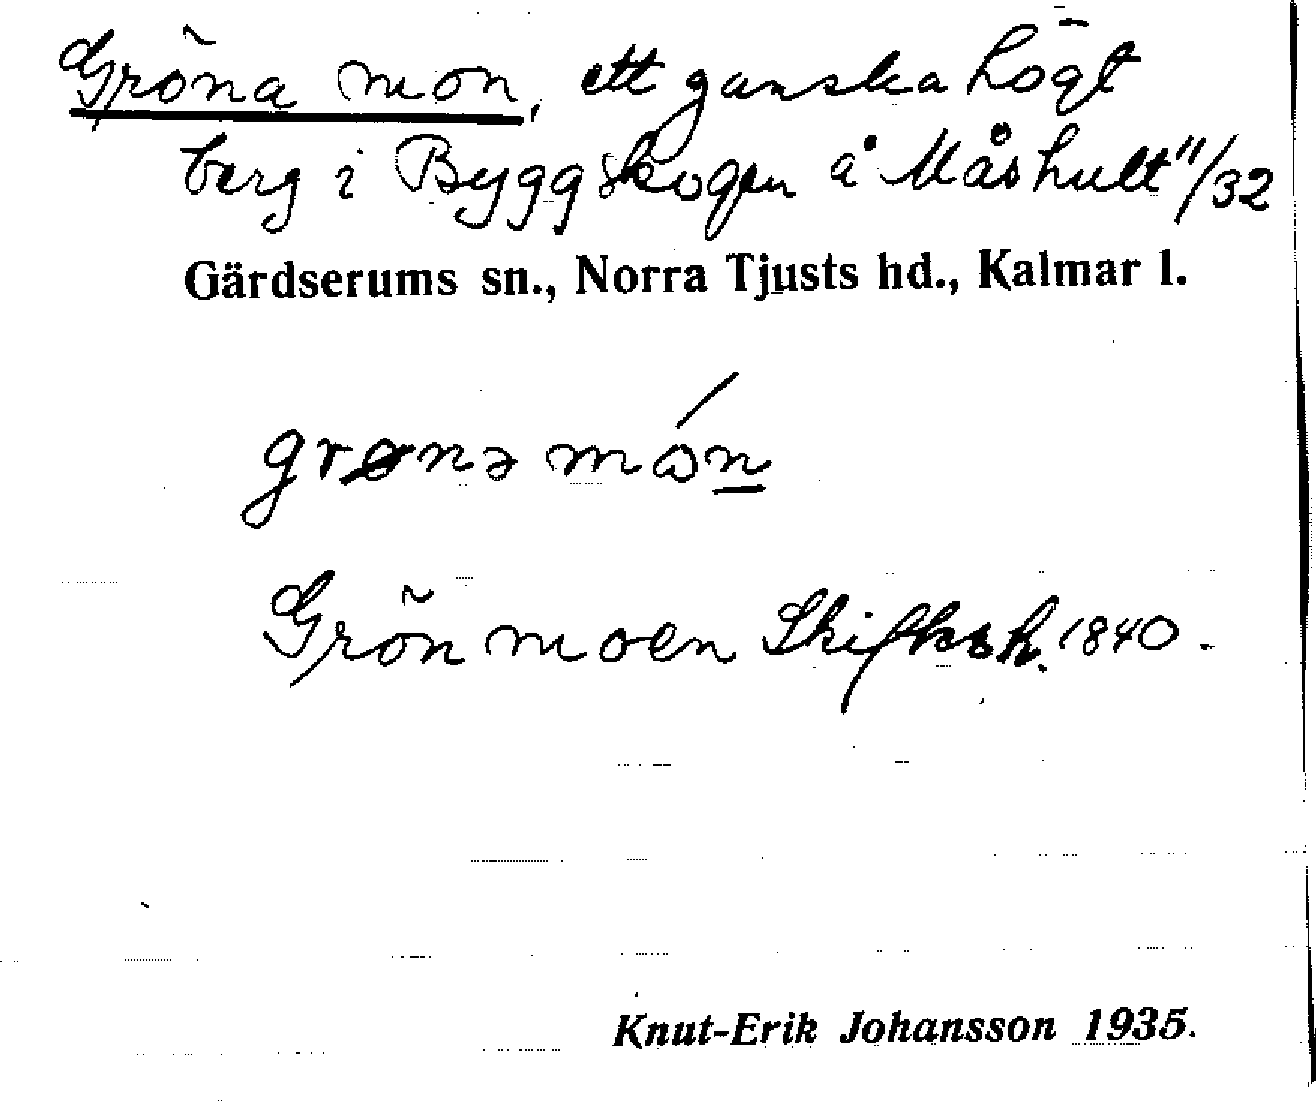 Gröna mon, ett ganska högt
berg i Byggskogen å Måshult 11/32
Gärdserums sn., Norra Tjusts hd., Kalmar l.
grønə món
Grönmoen Skifksk. 1840.
Knut-Erik Johansson 1935.